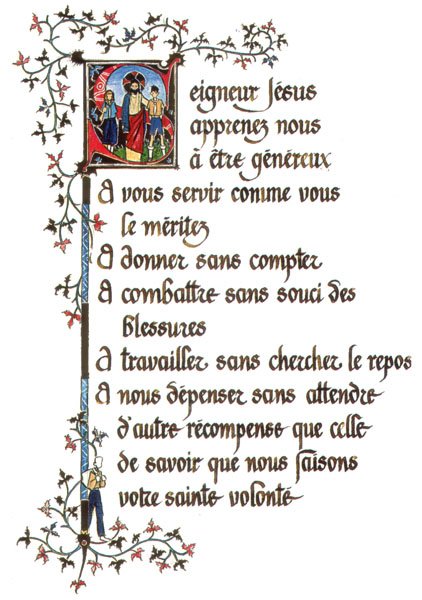 Seigneur Jésus
apprenez nous
à être généreux
A vous servir comme vous
le méritez
A donner sans compter
A combattre sans souci des
blessures
A travailler sans chercher le repos
A nous dépenser sans attendre
d'autre récompense que celle
de savoir que nous faisons
votre sainte volonté